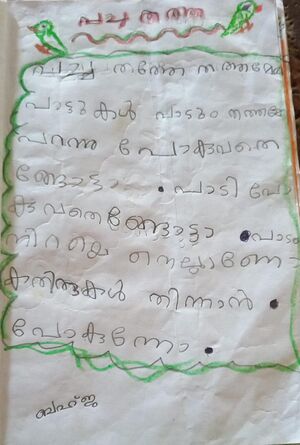 പച്ച തത്ത
പച്ച തത്തേ തത്തമ്മേ
പാട്ടുകൾ പാടും തത്തമ്മേ
പറന്നു പോകുവതെ
ങ്ങോട്ടാ . പാടി പോ
കുവതെങ്ങോട്ടാ പാട
നിറയെ നെല്ലാണേ
കതിരുകൾ തിന്നാൻ
പോകുന്നോ .